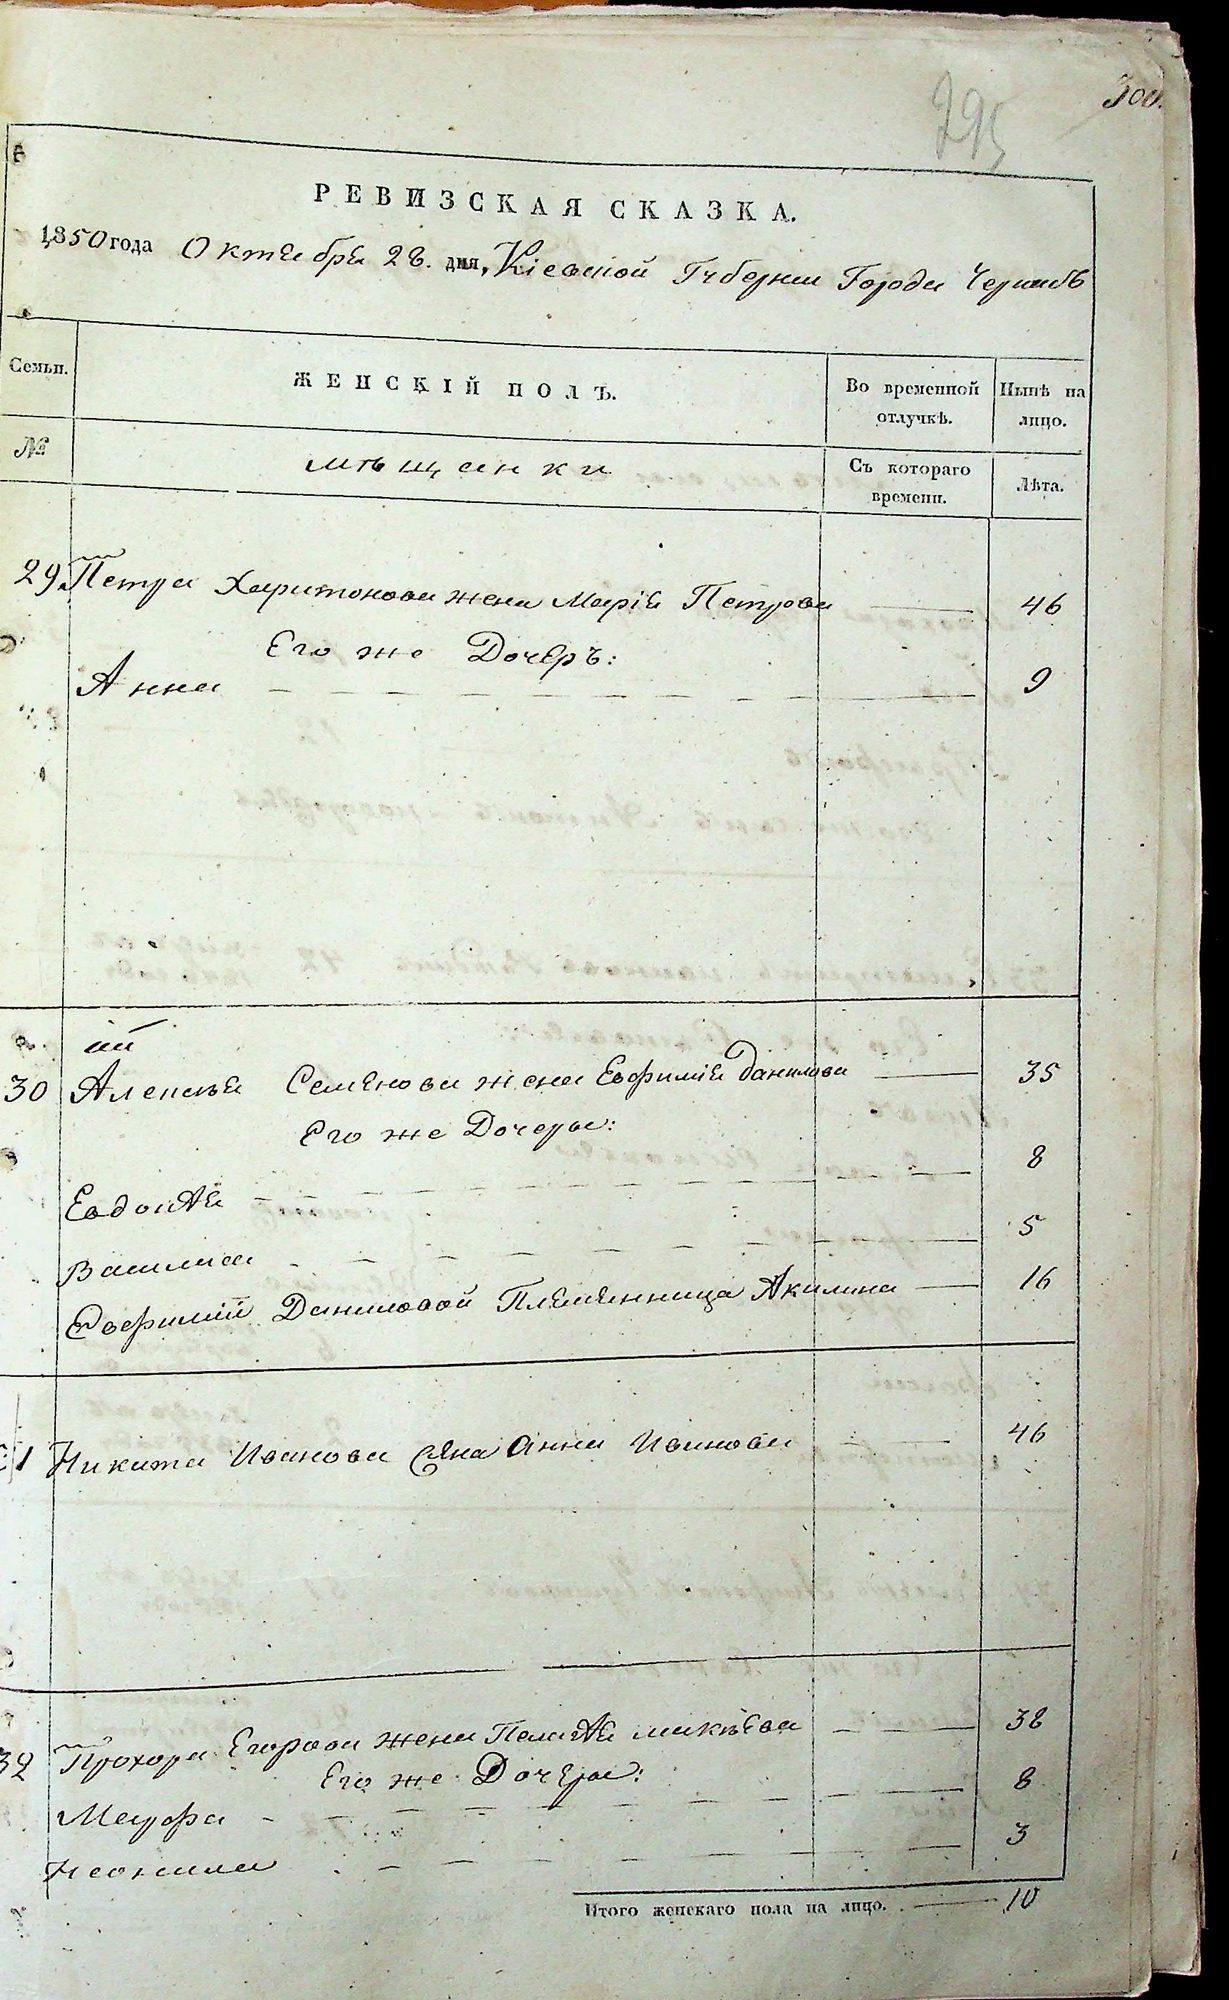 295
300.
РЕВИЗСКАЯ СКАЗКА.
1850 года Октября 28. дня, Кіевской Губерніи Города
Семьи.
ЖЕНСКІЙ ПОЛЪ.
Во временной отлучкѣ.
Нынѣ на лицо.
№
мѣщанки
Съ котораго времени.
Лѣта.
29. Петра Харитонова жена Марія Петрова 46
Его же Дочерь:
Анна 9
30 Алексѣя Семенова жена Евфимія Данилова 35
Его же Дочеры:
Евдокія 8
Василиса 5
Евфиміи Даниловой Племенница Акилина 16
31 Никита Иванова Анна Иванова 46
32 Прохора Егорова жена Пелагія 38
Его же Дочеры:
Мавра 8
Неонила 3
Итого женскаго пола на лицо. 10